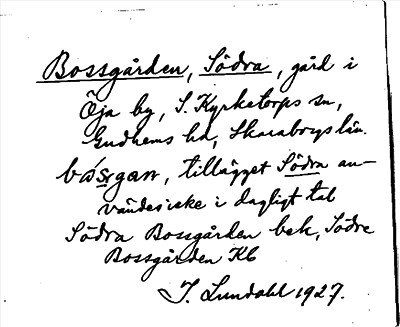 Bossgården, Södra, gård i
Öja by, S. Kyrketorps sn,
Gudhems hd, Skaraborgs län.
båsgan, tillägget Södra an-
vändes icke i dagligt tal
Södra Bossgården bek, Södre
Bossgården Kb
J. Lundahl 1927.